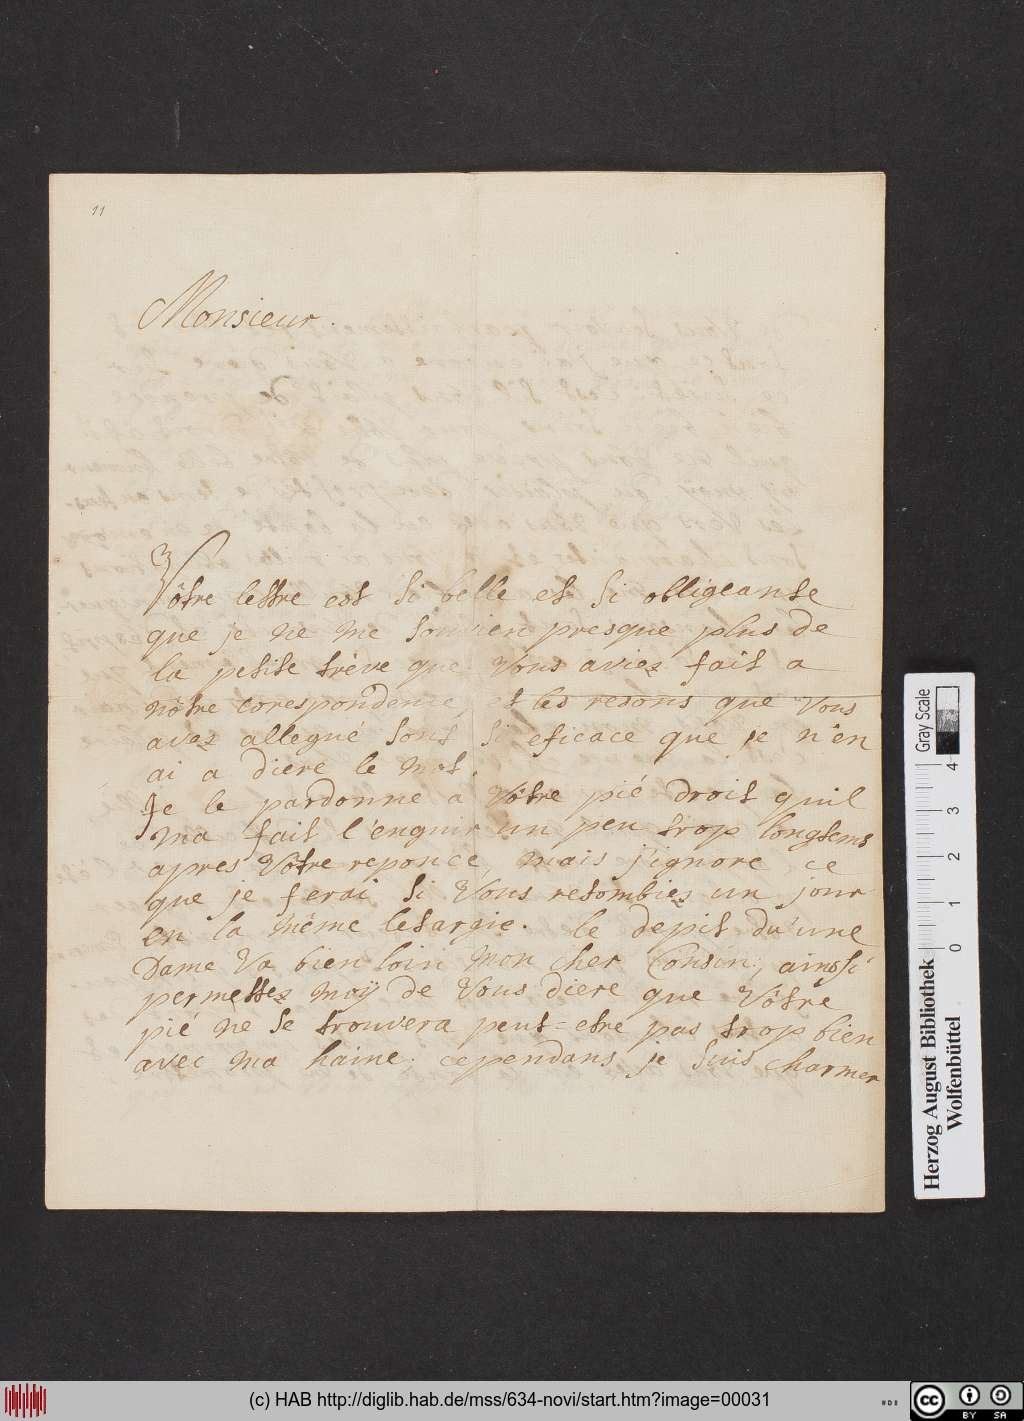 11
Monsieur.
Vôtre lettre est si belle et si obligeante
que je ne me souvien presque plus de
la petite trève que Vous aviez fait a
nôtre corespondence, et les resons que Vous
avez allegué sont si eficace que je n'en
ai a diere le mot.
Je le pardonne a Vôtre pié droit quil
ma fait l'enguir un peu trop longtems
apres Vôtre reponce, mais j'ignore ce
que je ferai si Vous retombiez un jour
en la même letargie. le depit du'une
Dame Va bien loin mon cher Cousin, ainsi
permettez moÿ de Vous diere que Vôtre
pié ne se trouvera peut=etre pas trop bien
avec ma haine; cependans je suis charmer
Gray Scale
4
3
2
1
0
Herzog August Bibliothek
Wolfenbüttel
(c) HAB http://diglib.hab.de/mss/634-novi/start.htm?image=00031
cc
BY SA